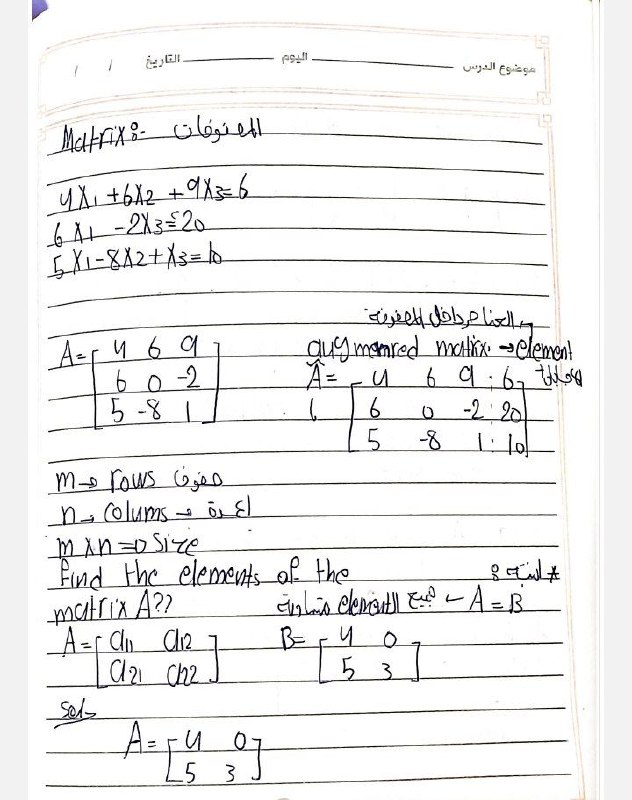 موضوع الدرس اليوم التاريخ / /
Matrix:- المصفوفات
4X1 + 6X2 + 9X3 = 6
6X1 - 2X3 = 20
5X1 - 8X2 + X3 = 10
العناصر داخل المصفوفة
augmenred matrix. → element
A = [ 4 6 9
6 0 -2
5 -8 1 ]
Ã = [ 4 6 9 : 6
6 0 -2 : 20
5 -8 1 : 10 ]
m → rows صفوف
n → colums → اعمدة
m × n ⇒ size
find the elements of the
matrix A??
A = B ← جميع elementال متساوية
A = [ a11 a12
a21 a22 ]
B = [ 4 0
5 3 ]
Sol-
A = [ 4 0
5 3 ]